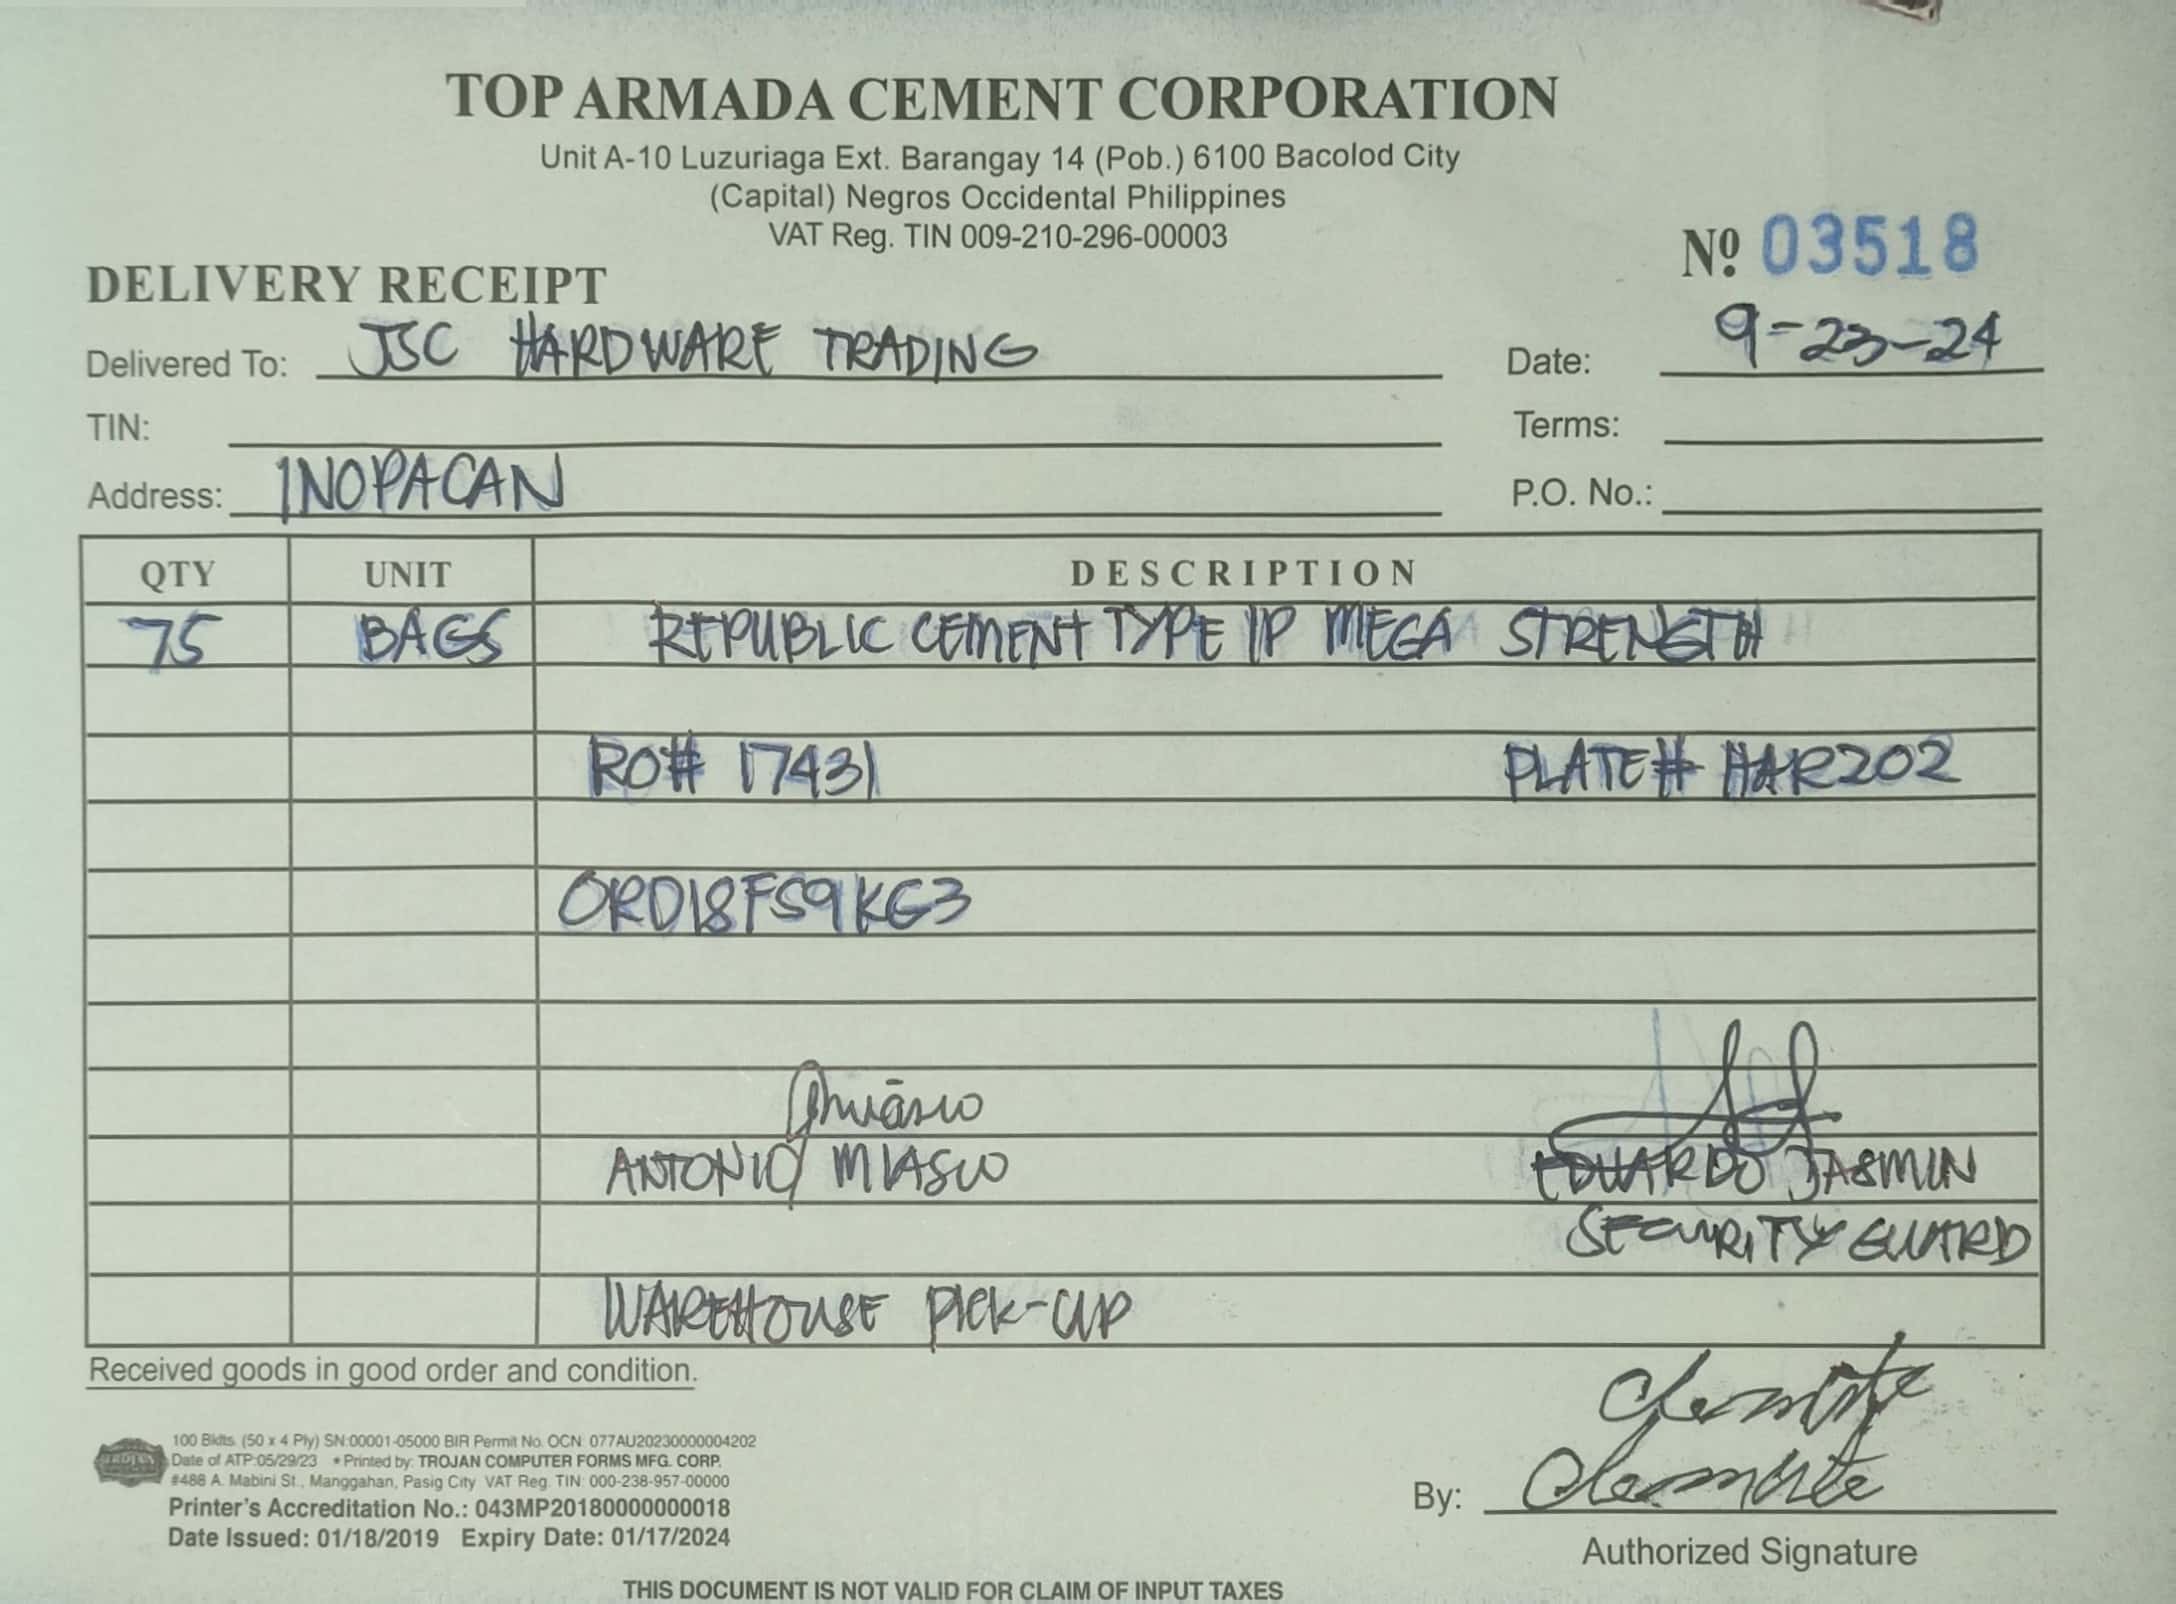 TOP ARMADA CEMENT CORPORATION
Unit A-10 Luzuriaga Ext. Barangay 14 (Pob.) 6100 Bacolod City
(Capital) Negros Occidental Philippines
VAT Reg. TIN 009-210-296-00003
Nº 03518
DELIVERY RECEIPT
Delivered To: JSC HARDWARE TRADING Date: 9-23-24
TIN: Terms:
Address: INOPACAN P.O. No.:
QTY UNIT DESCRIPTION
75 BAGS REPUBLIC CEMENT TYPE 1P MEGA STRENGTH
RO# 17431 PLATE# HAR202
ORD18FS9KG3
ANTONIO MIASCO EDUARDO JASMIN
SECURITY GUARD
WAREHOUSE PICK-UP
Received goods in good order and condition.
100 Bklts. (50 x 4 Ply) SN:00001-05000 BIR Permit No. OCN: 077AU20230000004202
Date of ATP:05/29/23 * Printed by: TROJAN COMPUTER FORMS MFG. CORP.
#488 A. Mabini St., Manggahan, Pasig City VAT Reg. TIN: 000-238-957-00000
Printer's Accreditation No.: 043MP20180000000018
Date Issued: 01/18/2019 Expiry Date: 01/17/2024
By:
Authorized Signature
THIS DOCUMENT IS NOT VALID FOR CLAIM OF INPUT TAXES